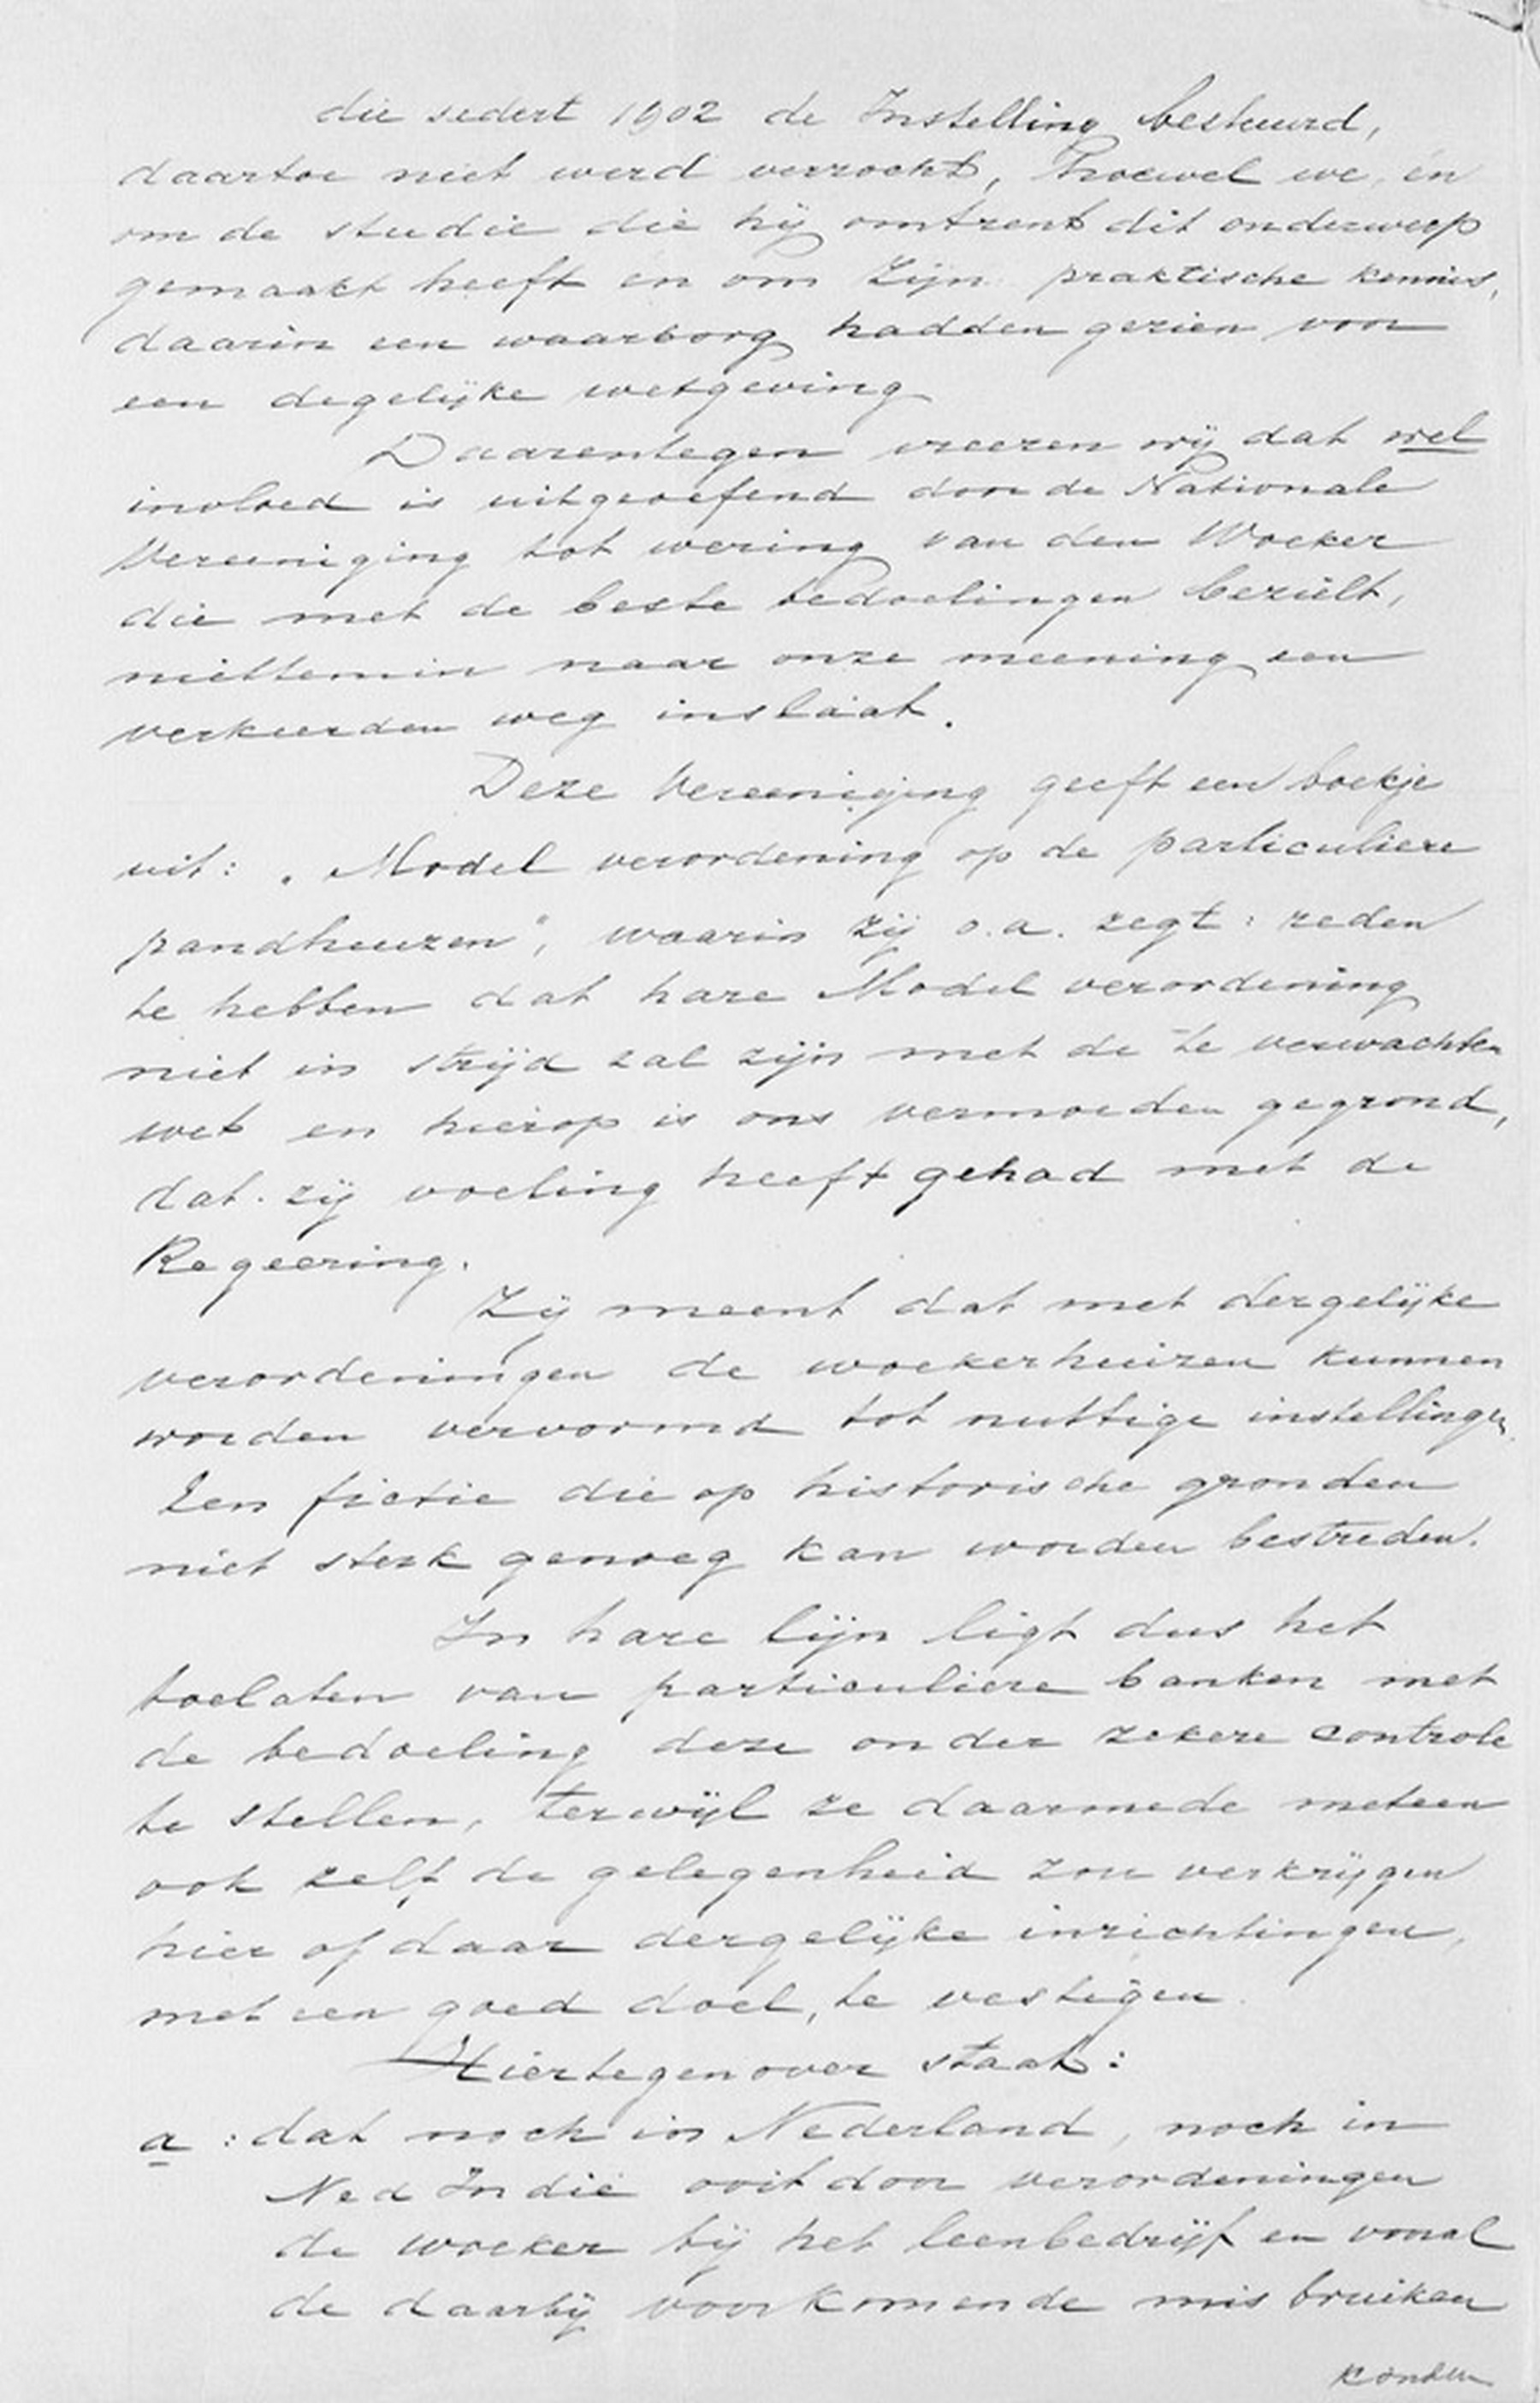 die sedert 1902 de Instelling bestuurd,
daartoe niet werd verzocht, hoewel we, én
om de studie die hij omtrent dit onderwerp
gemaakt heeft én om zijn praktische kennis,
daarin een waarborg hadden gezien voor
een degelijke wetgeving
Daarentegen vreezen wij dat wel
invloed is uitgeoefend door de Nationale
Vereeniging tot wering van den Woeker
die met de beste bedoelingen bezield,
niettemin naar onze meening een
verkeerden weg inslaat.
Deze Vereeniging geeft een boekje
uit: „Model verordening op de particuliere
pandhuizen", waarin zij o.a. zegt: reden
te hebben dat hare Model verordening
niet in strijd zal zijn met de te verwachten
wet en hierop is ons vermoeden gegrond,
dat zij voeling heeft gehad met de
Regeering.
Zij meent dat met dergelijke
verordeningen de woekerhuizen kunnen
worden vervormd tot nuttige instellingen.
Een fictie die op historische gronden
niet sterk genoeg kan worden bestreden.
In hare lijn ligt dus het
toelaten van particuliere banken met
de bedoeling deze onder zekere controle
te stellen, terwijl ze daarmede meteen
ook zelf de gelegenheid zou verkrijgen
hier of daar dergelijke inrichtingen,
met een goed doel, te vestigen.
Hiertegenover staat:
a: dat noch in Nederland, noch in
Ned Indië ooit door verordeningen
de woeker bij het leenbedrijf en vooral
de daarbij voorkomende misbruiken
konden